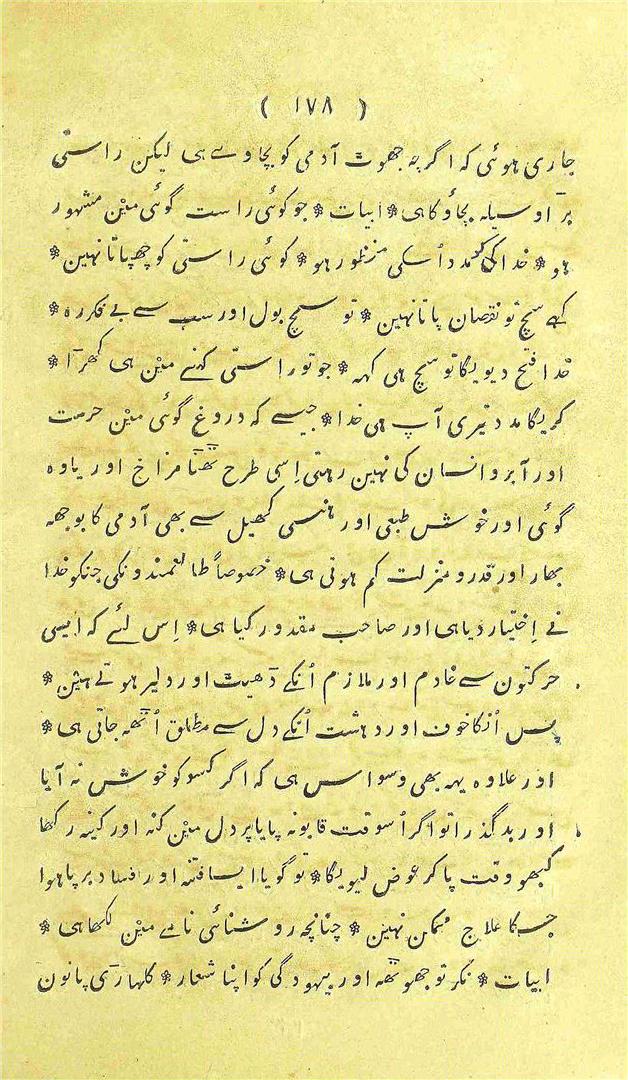 ( ۱۷۸ )
جاری ہوئی کہ اگرچہ جھوٹ آدمی کو بچاوے ہی لیکن راستی
بڑا وسیلہ بچاؤکاہی * ابیات * جوکوئی راست گوئی میں مشہور
ہو * خداکی مدد اُسکی منظور ہو * کوئی راستی کو چھپاتا نہین *
کہے سچ تو نقصان پاتا نہین * تو سچ بول اور سب سے بے فکر رہ *
خدا فتح دیویگا تو سچ ہی کہہ * جو تو راستی کہنے میں ہی کھرا *
کریگا مدد تیری آپ ہی خدا * جیسے کہ دروغ گوئی میں حرمت
اور آبرو انسان کی نہین رہتی اِسی طرح ٹھٹا مزاخ اور یاوہ
گوئی اور خوش طبعی اور ہنسی کھیل سے بھی آدمی کا بوجھہ
بھار اور قدر و منزلت کم ہوتی ہی * خصوصاً طالعمندونکی جنکو خدا
نے اِختیار دیاہی اور صاحب مقدور کیا ہی * اِس لئے کہ ایسی
حرکتون سے خادم اور ملازم اُنکے ڈھیٹ اور دلیر ہوتے ہین *
پس اُنکا خوف اور دہشت اُنکے دل سے مطلق اُٹھہ جاتی ہی *
اور علاوہ یہہ بھی وسواس ہی کہ اگر کسو کو خوش نہ آیا
اور بد گذرا تو اگر اُسوقت قابو نہ پایا پر دل میں کنہ اور کینہ رکھا
کبھو وقت پاکر عوض لیویگا * تو گویا ایسا فتنہ اور فساد برپا ہوا
جسکا علاج ممکن نہین * چنانچہ روشنائی نامے میں لکھاہی *
ابیات * نکر تو جھوٹھہ اور بیہودگی کو اپنا شعار * کلہاڑی پانون